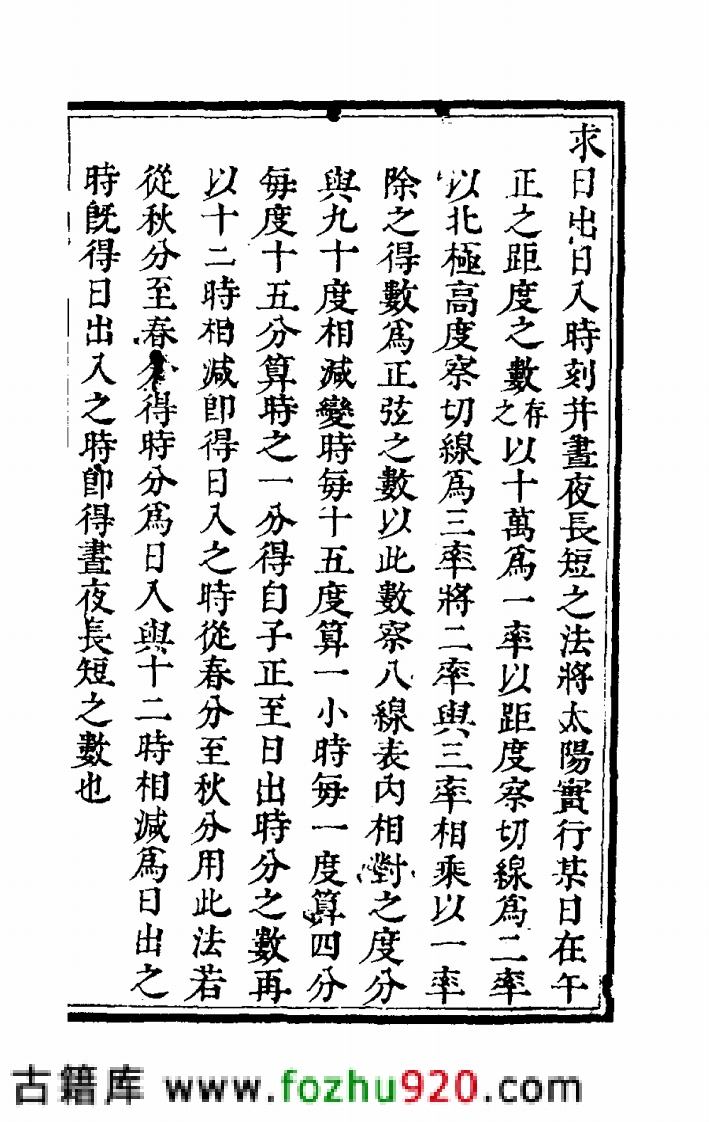 求日出日入時刻并晝夜長短之法將太陽實行某日在午
正之距度之數存之以十萬爲一率以距度察切線爲二率
以北極高度察切線爲三率將二率與三率相乘以一率
除之得數爲正弦之數以此數察八線表內相對之度分
與九十度相減變時每十五度算一小時每一度算四分
每度十五分算時之一分得自子正至日出時分之數再
以十二時相減卽得日入之時從春分至秋分用此法若
從秋分至春分得時分爲日入與十二時相減爲日出之
時旣得日出入之時卽得晝夜長短之數也
古籍库 www.fozhu920.com